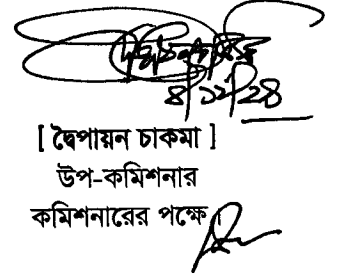 ৪/১২/২৪
[ দ্বৈপায়ন চাকমা ]
উপ-কমিশনার
কমিশনারের পক্ষে।